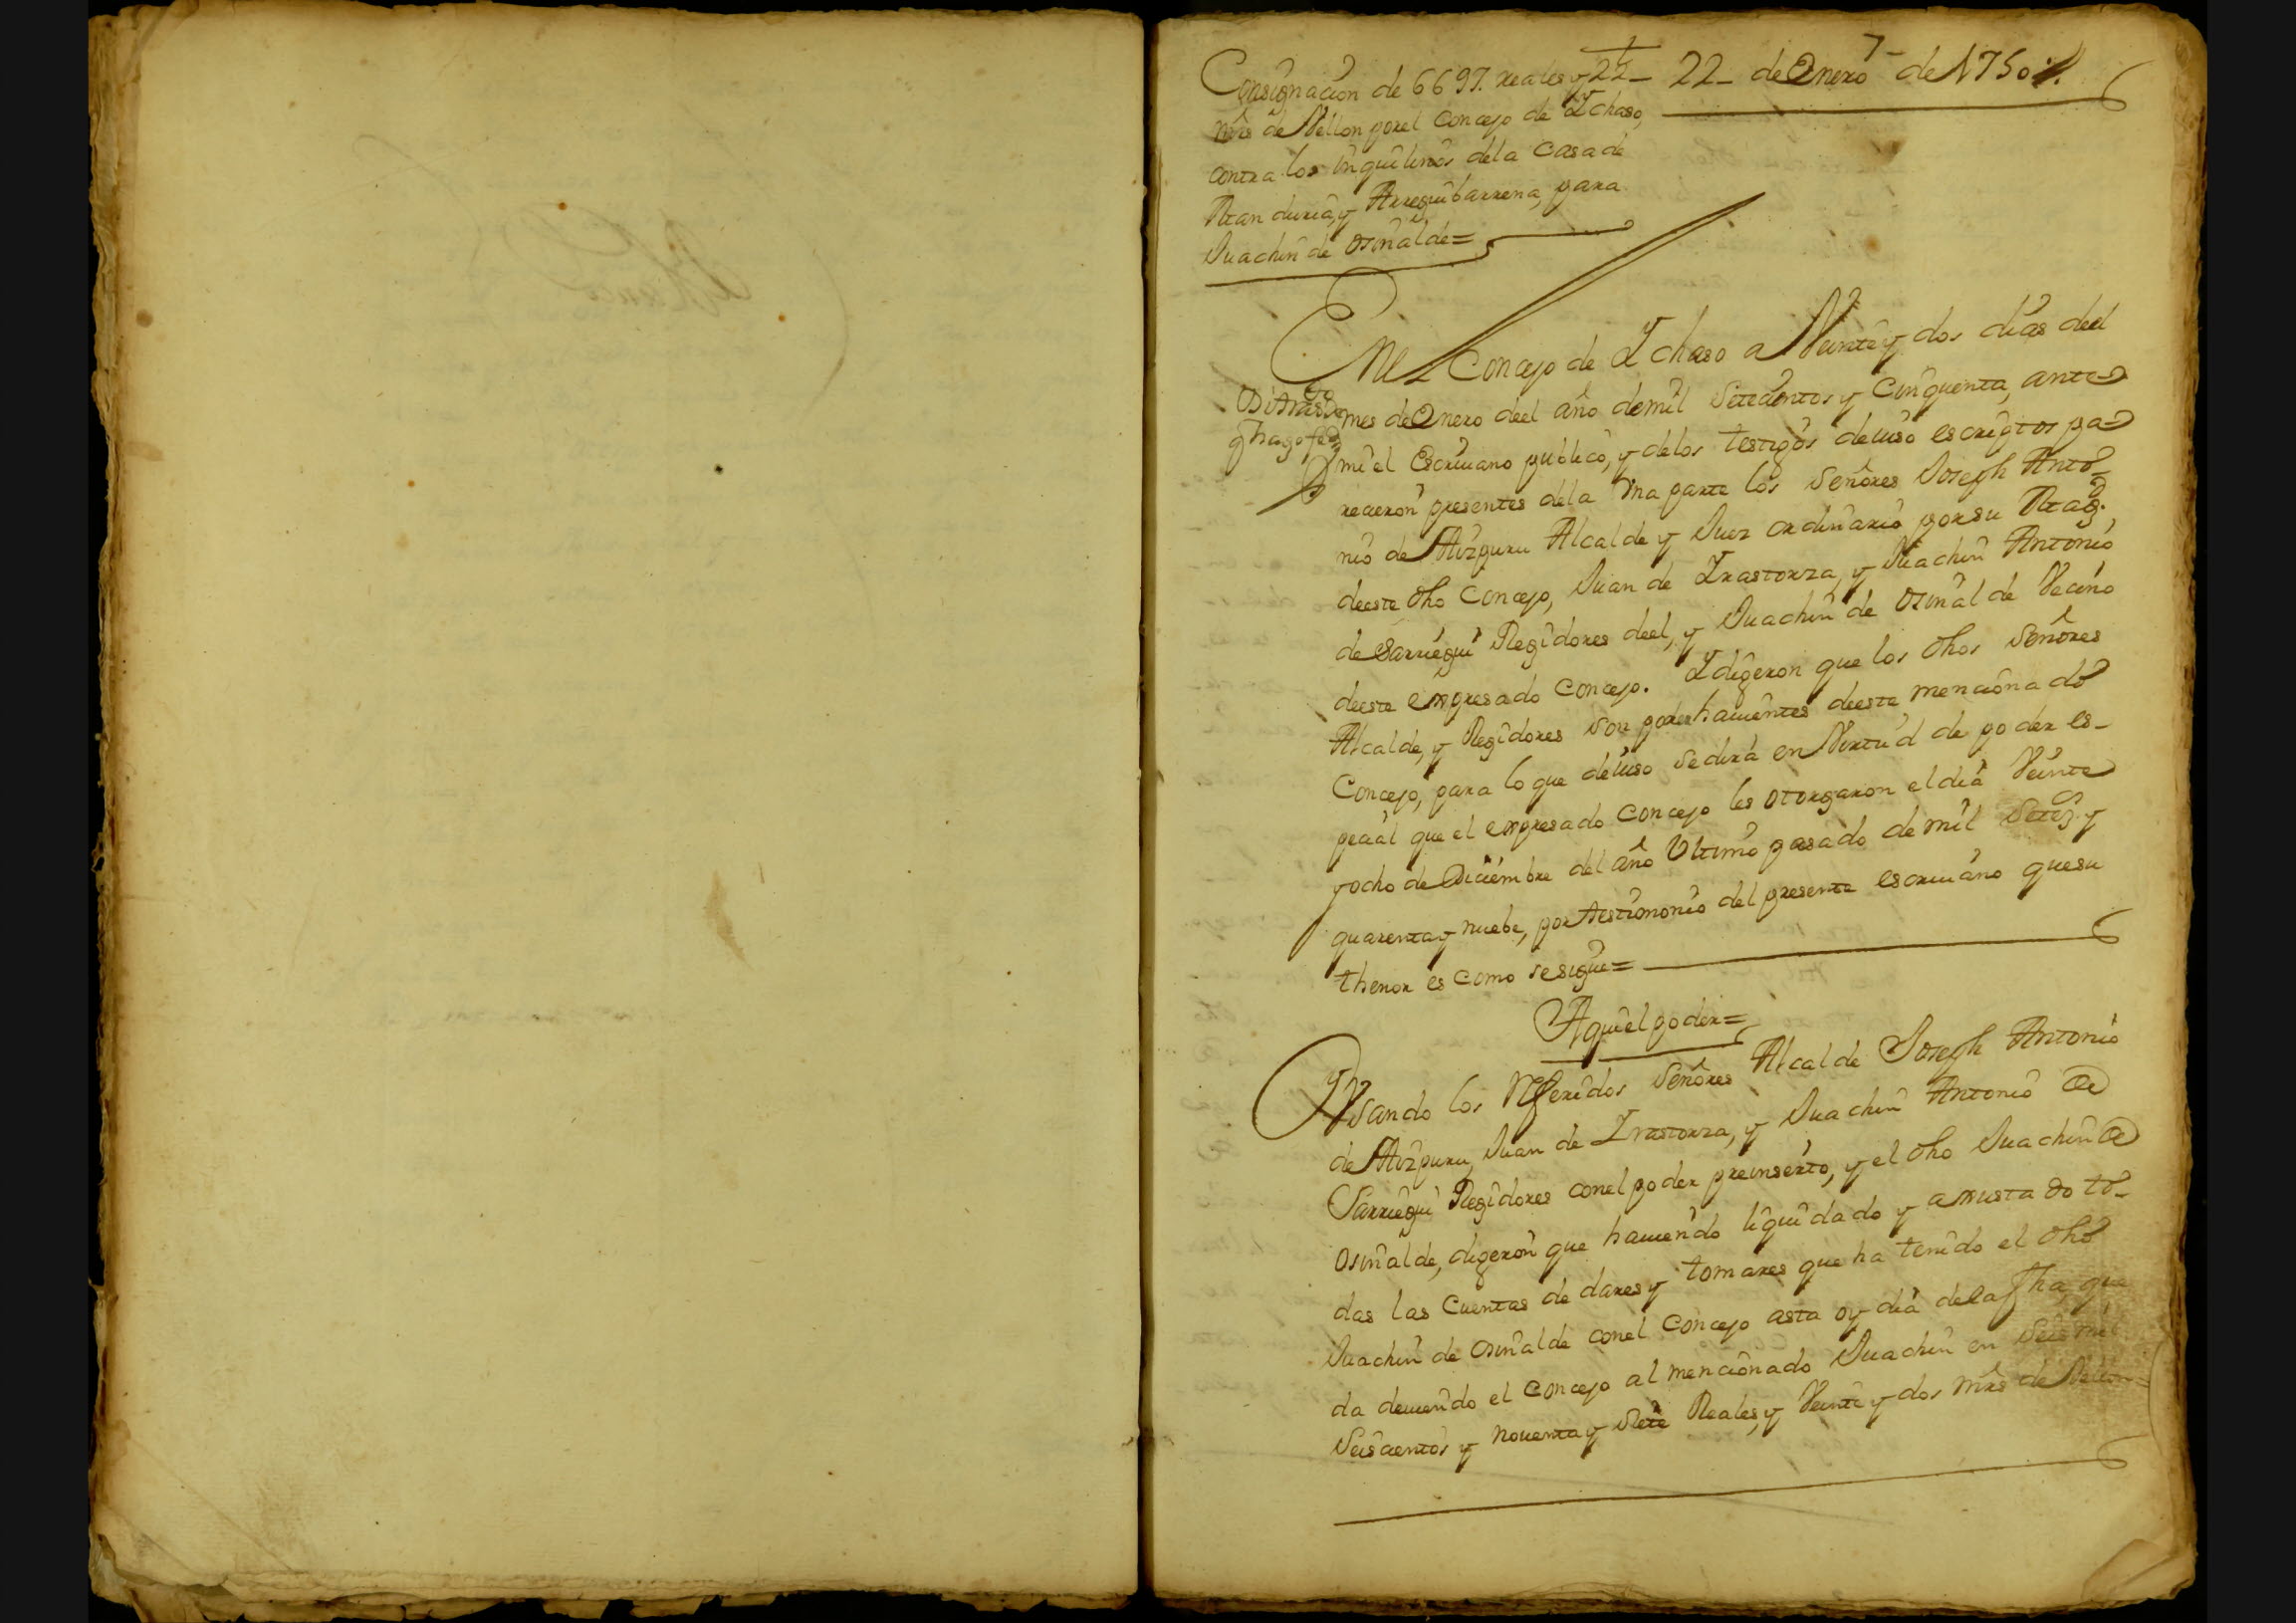 Consignacion de 6697. reales y 22_ 22_ de Enero de 1750//.
mrs de Vellon por el Concejo de Ychaso,
contra los inquilinos dela Casa de
duria, y Arreguibarrena, para
Juachin de Osinalde=
En el Concejo de Ychaso a Veinte y dos dias deel
mes de Enero deel año de mil Setecientos y Cinquenta, ante
mi el Escriuano publico, y delos testigos deiuso escriptos pa-
recieron presentes dela Una parte los Señores Joseph Anto-
nio de Aizpuru Alcalde y Juez ordinario por su Magd.
deeste dho Concejo, Juan de Yrastorza, y Juachin Antonio
de Sarriegui Regidores deel, y Juachin de Osinalde Vecino
deeste expresado Concejo. Y digeron que los dhos Señores
Alcalde, y Regidores son poderhauientes deeste mencionado
Concejo, para lo que deiuso se dira en Virtud de poder es-
pecial que el expresado Concejo les otorgaron el dia Veinte
y ocho de Diciembre del año Ultimo pasado de mil Setezs. y
quarenta y nuebe, por testimonio del presente escriuano que su
thenor es como se sigue=
Aqui el poder=
Y Vsando los Referidos Señores Alcalde Joseph Antonio
de Aizpuru, Juan de Yrastorza, y Juachin Antonio de
Sarriegui Regidores con el poder preinserto, y el dho Juachin de
Osinalde, digeron que hauiendo liquidado y axustado to-
das las Cuentas de dares y tomares que ha tenido el dho
Juachin de Osinalde con el Concejo asta oy dia dela fha, que
da deuiendo el Concejo al mencionado Juachin en Seis mil
Seiscientos y nouenta y siete Reales, y Veinte y dos mrs de Vellon=